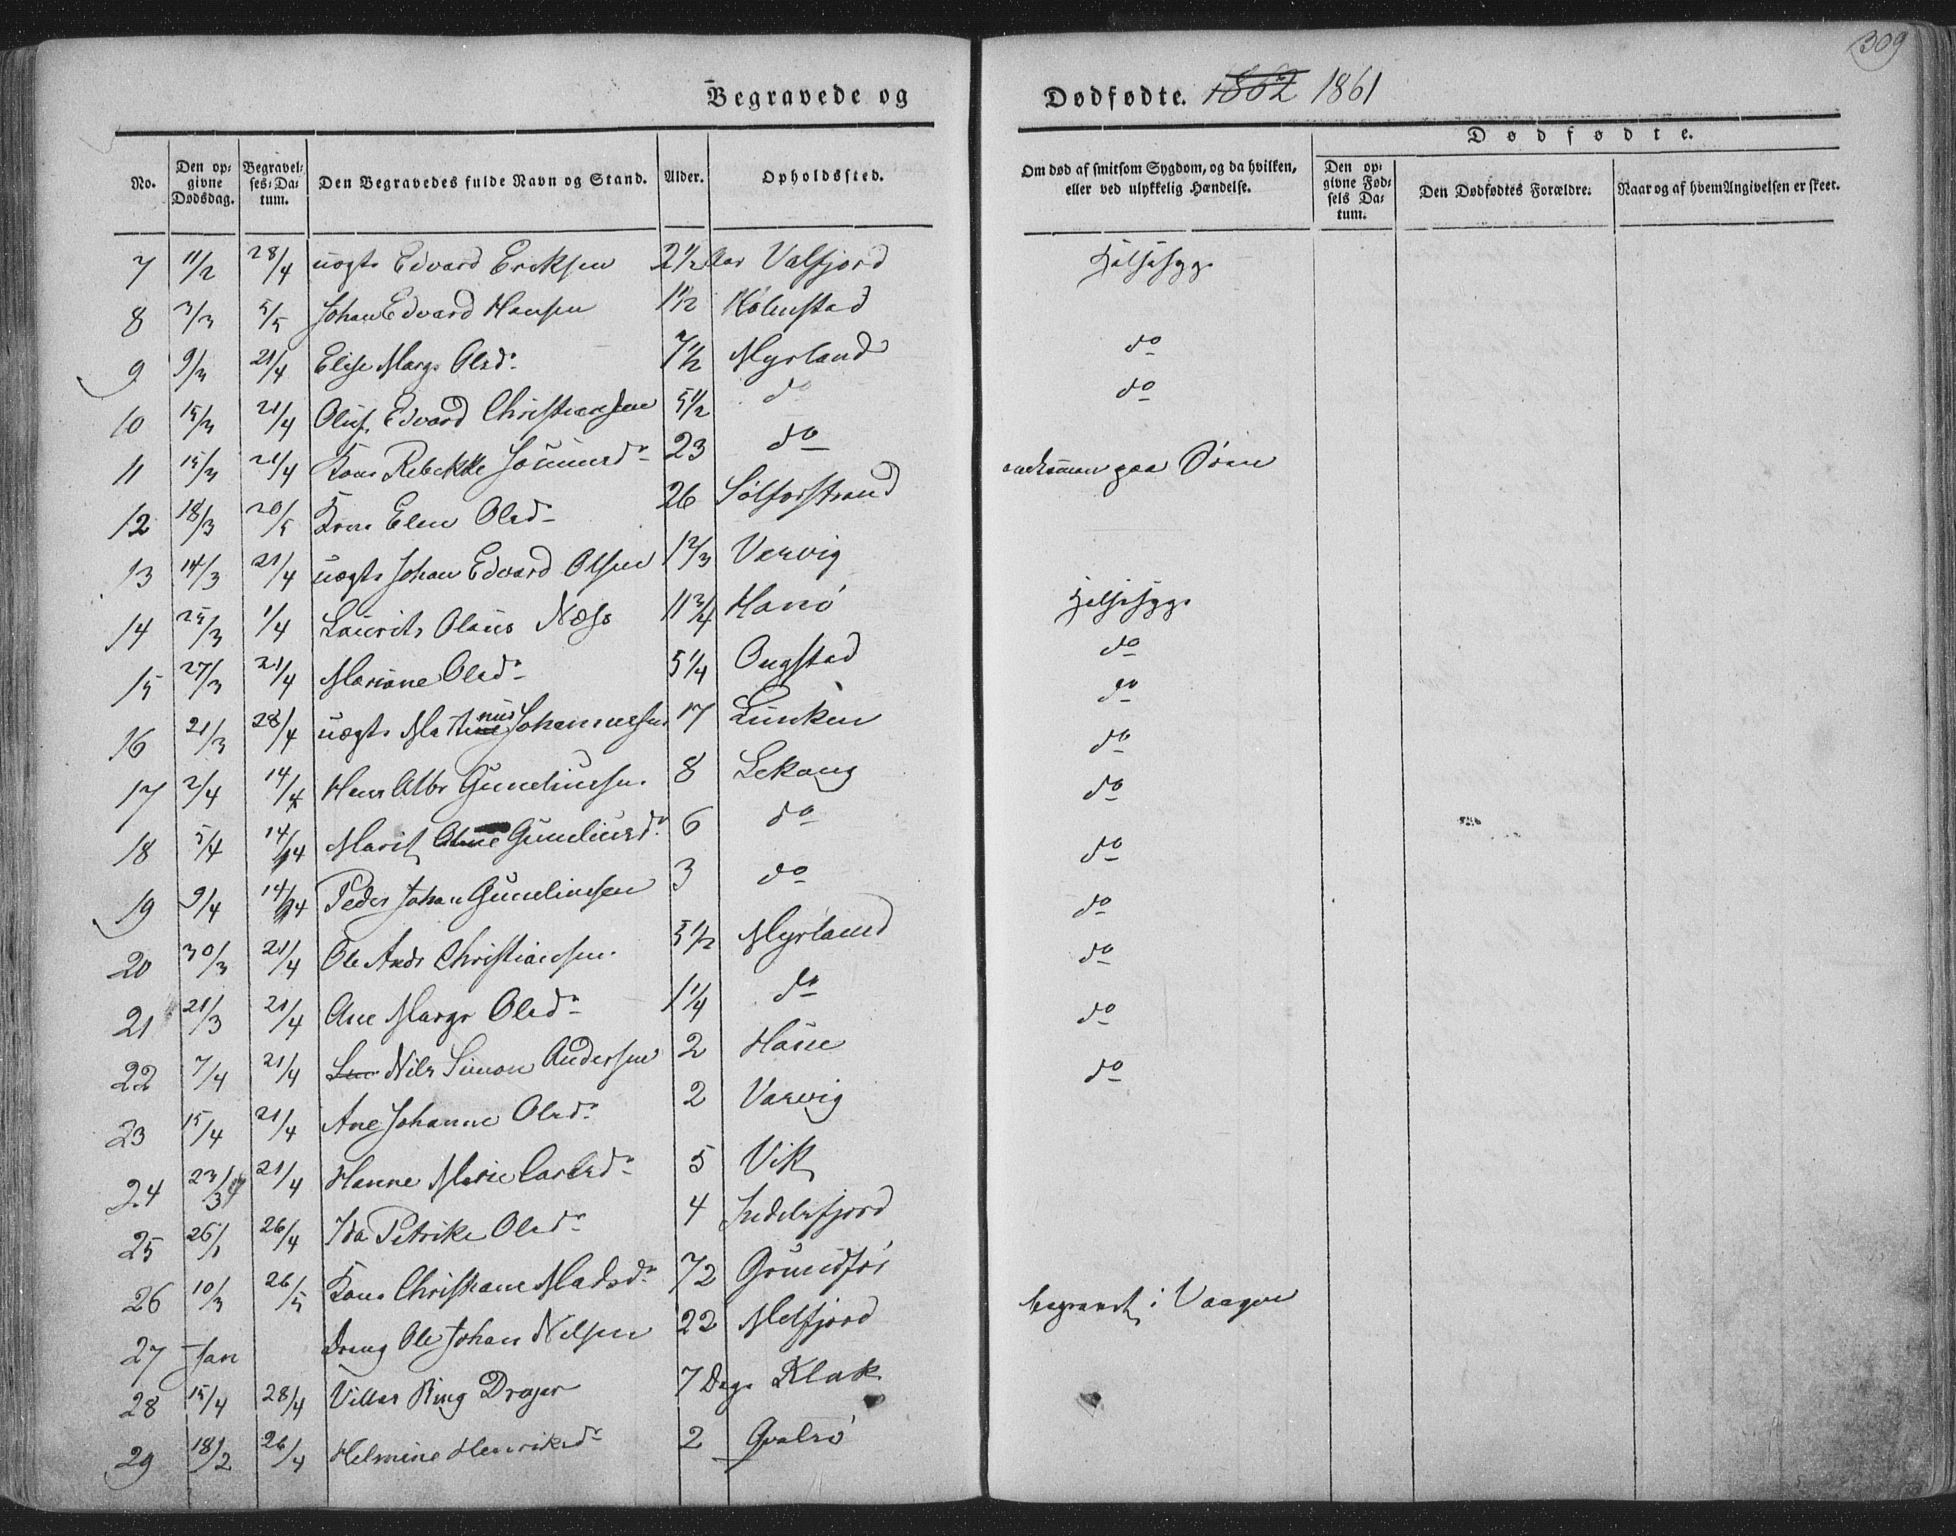 309
Begravede og Dødfødte. 1862 1861
Dødfødte.
No. Den opgivne Dødsdag. Begravelses-Datum. Den Begravedes fulde Navn og Stand. Alder. Opholdssted. Om død af smitsom Sygdom, og da hvilken, eller ved ulykkelig Hændelse. Den opgivne Fødsels Datum. Den Dødfødtes Forældre. Naar og af hvem Angivelsen er skeet.
7 11/2 28/4 uægte Edvard Eriksen 2 1/2 Aar Valfjord Halssyge
8 3/3 5/5 Johan Edvard Hansen 1 1/2 Kolmstad
9 9/3 21/4 Elise Margr Olsd. 7 1/2 Myrland do
10 15/3 21/4 Oluf Edvard Christiansen 5 1/2 do do
11 15/3 21/4 Kone Rebekke 23 do omkommen paa Søen
12 18/3 20/5 Kone Elen Olsd 26 Sølforstrand
13 14/3 21/4 uægte Johan Edvard Olsen 1 2/3 Varvig
14 25/3 1/4 Laurits Olaus Næss 11 3/4 Hanø Halssyge
15 27/3 21/4 Mariane Olsd. 5 1/4 Ongstad do
16 21/3 28/4 uægte Martinus Johannessen 17 Lunken do
17 2/4 14/4 Hans Albr Guneliussen 8 Lekang do
18 5/4 14/4 Marit Guneliusd. 6 do do
19 9/4 14/4 Peder Johan Guneliussen 3 do do
20 30/3 21/4 Ole Andr Christiansen 3 1/2 Myrland do
21 21/3 21/4 Ane Margr Olsd. 1 1/4 do do
22 7/4 21/4 Nils Simon Andersen 2 Haue do
23 15/4 21/4 Ane Johanne Olsd. 2 Varvig do
24 23/3 21/4 Hanne Marie Carlsd. 5 Vik
25 26/1 26/4 Ida Petrike Olsd 4 Indrefjord
26 10/3 26/5 Kone Christiane Madsd. 72 Grundfør
27 Jan Dreng Ole Johan Nilsen 22 Melfjord begravet i Vaagen
28 15/4 28/4 Villas Ring Drejer 7 Dage Klak
29 18/2 26/4 Helmine Henriksd 2 Gvalnø